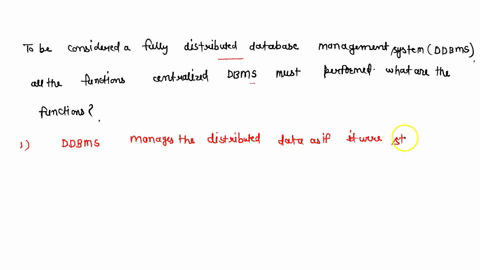 To be considered a fully distributed database management system (DDBMS),
all the functions centralized DBMS must performed. what are the
functions?
1) DDBMS manages the distributed data as if it were st